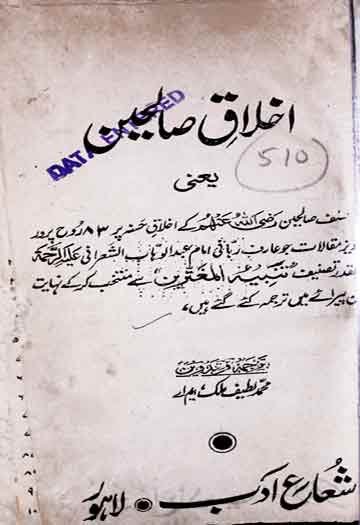 اخلاقِ صالحین
DATA ENTERED
510
یعنی
صالحین رضی اللہ عنہم کے اخلاق حسنہ پر ۸۳ روح پرور
مقالات جو عارف ربانی امام عبدالوہاب الشعرانی علیہ الرحمۃ
تصنیف "تنبیہ المغترین" سے منتخب کر کے نہایت
پیرائے میں ترجمہ کئے گئے ہیں،
محمد لطیف ملک، ایم اے
شعاعِ ادب • لاہور